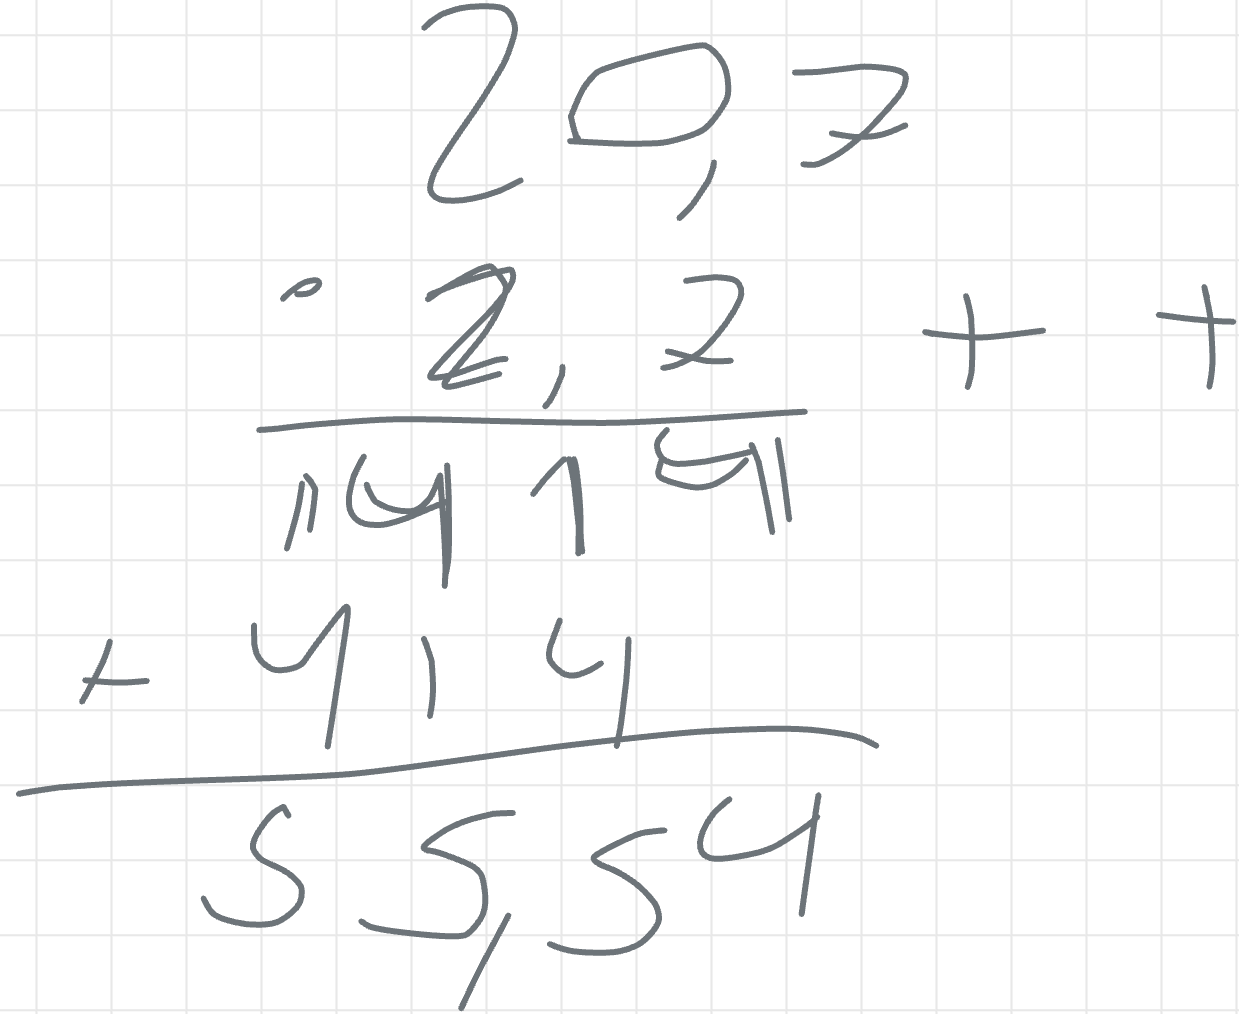 20,7
· 2,2 + +
1414
+ 414
55,54